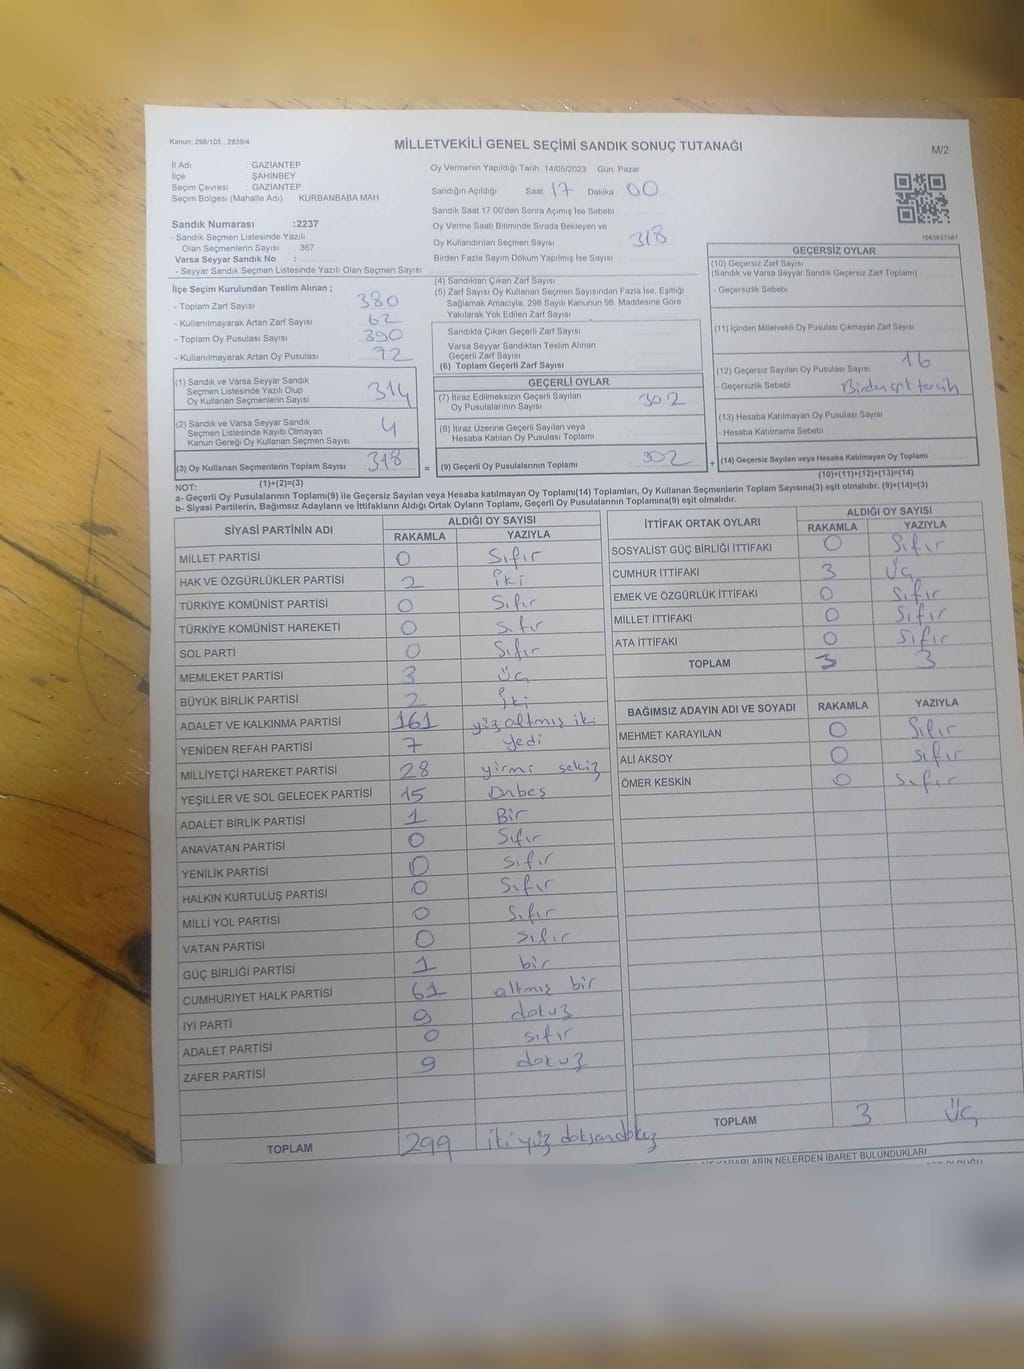 Kanun: 298/105 , 2839/4
MİLLETVEKİLİ GENEL SEÇİMİ SANDIK SONUÇ TUTANAĞI
M/2
İl Adı : GAZİANTEP
İlçe : ŞAHİNBEY
Seçim Çevresi : GAZİANTEP
Seçim Bölgesi (Mahalle Adı) KURBANBABA MAH
Oy Vermenin Yapıldığı Tarih 14/05/2023 Gün: Pazar
Sandığın Açıldığı Saat 17 Dakika 00
Sandık Saat 17 00'den Sonra Açımış İse Sebebi
Sandık Numarası :2237
- Sandık Seçmen Listesinde Yazılı
Olan Seçmenlerin Sayısı 367
Varsa Seyyar Sandık No :
- Seyyar Sandık Seçmen Listesinde Yazılı Olan Seçmen Sayısı
Oy Verme Saati Bitiminde Sırada Bekleyen ve
Oy Kullandırılan Seçmen Sayısı 318
Birden Fazla Sayım Döküm Yapılmış İse Sayısı
1083037587
İlçe Seçim Kurulundan Teslim Alınan ;
- Toplam Zarf Sayısı 380
- Kullanılmayarak Artan Zarf Sayısı 62
- Toplam Oy Pusulası Sayısı 390
- Kullanılmayarak Artan Oy Pusulası 72
(1) Sandık ve Varsa Seyyar Sandık
Seçmen Listesinde Yazılı Olup
Oy Kullanan Seçmenlerin Sayısı 314
(2) Sandık ve Varsa Seyyar Sandık
Seçmen Listesinde Kayıtlı Olmayan
Kanun Gereği Oy Kullanan Seçmen Sayısı 4
(3) Oy Kullanan Seçmenlerin Toplam Sayısı 318 =
(4) Sandıktan Çıkan Zarf Sayısı
(5) Zarf Sayısı Oy Kullanan Seçmen Sayısından Fazla İse, Eşitliği
Sağlamak Amacıyla, 298 Sayılı Kanunun 98. Maddesine Göre
Yakılarak Yok Edilen Zarf Sayısı
Sandıkta Çıkan Geçerli Zarf Sayısı
Varsa Seyyar Sandıktan Teslim Alınan
Geçerli Zarf Sayısı
(6) Toplam Geçerli Zarf Sayısı
GEÇERLİ OYLAR
(7) İtiraz Edilmeksizin Geçerli Sayılan
Oy Pusulalarının Sayısı 302
(8) İtiraz Üzerine Geçerli Sayılan veya
Hesaba Katılan Oy Pusulası Toplamı
(9) Geçerli Oy Pusulalarının Toplamı 302 +
GEÇERSİZ OYLAR
(10) Geçersiz Zarf Sayısı
(Sandık ve Varsa Seyyar Sandık Geçersiz Zarf Toplamı)
- Geçersizlik Sebebi
(11) İçinden Milletvekili Oy Pusulası Çıkmayan Zarf Sayısı
(12) Geçersiz Sayılan Oy Pusulası Sayısı 16
- Geçersizlik Sebebi Birden çok tercih
(13) Hesaba Katılmayan Oy Pusulası Sayısı
- Hesaba Katılmama Sebebi
(14) Geçersiz Sayılan veya Hesaba Katılmayan Oy Toplamı
NOT: (1)+(2)=(3)
(10)+(11)+(12)+(13)=(14)
a- Geçerli Oy Pusulalarının Toplamı(9) ile Geçersiz Sayılan veya Hesaba katılmayan Oy Toplamı(14) Toplamları, Oy Kullanan Seçmenlerin Toplam Sayısına(3) eşit olmalıdır. (9)+(14)=(3)
b- Siyasi Partilerin, Bağımsız Adayların ve İttifakların Aldığı Ortak Oyların Toplamı, Geçerli Oy Pusulalarının Toplamına(9) eşit olmalıdır.
SİYASİ PARTİNİN ADI ALDIĞI OY SAYISI
RAKAMLA YAZIYLA
MİLLET PARTİSİ 0 Sıfır
HAK VE ÖZGÜRLÜKLER PARTİSİ 2 iki
TÜRKİYE KOMÜNİST PARTİSİ 0 Sıfır
TÜRKİYE KOMÜNİST HAREKETİ 0 Sıfır
SOL PARTİ 0 Sıfır
MEMLEKET PARTİSİ 3 Üç
BÜYÜK BİRLİK PARTİSİ 2 İki
ADALET VE KALKINMA PARTİSİ 161 yüz altmış iki
YENİDEN REFAH PARTİSİ 7 yedi
MİLLİYETÇİ HAREKET PARTİSİ 28 yirmi sekiz
YEŞİLLER VE SOL GELECEK PARTİSİ 15 Onbeş
ADALET BİRLİK PARTİSİ 1 Bir
ANAVATAN PARTİSİ 0 Sıfır
YENİLİK PARTİSİ 0 Sıfır
HALKIN KURTULUŞ PARTİSİ 0 Sıfır
MİLLİ YOL PARTİSİ 0 Sıfır
VATAN PARTİSİ 0 Sıfır
GÜÇ BİRLİĞİ PARTİSİ 1 bir
CUMHURİYET HALK PARTİSİ 61 altmış bir
İYİ PARTİ 9 dokuz
ADALET PARTİSİ 0 sıfır
ZAFER PARTİSİ 9 dokuz
TOPLAM 299 iki yüz doksandokuz
İTTİFAK ORTAK OYLARI ALDIĞI OY SAYISI
RAKAMLA YAZIYLA
SOSYALİST GÜÇ BİRLİĞİ İTTİFAKI 0 Sıfır
CUMHUR İTTİFAKI 3 Üç
EMEK VE ÖZGÜRLÜK İTTİFAKI 0 Sıfır
MİLLET İTTİFAKI 0 Sıfır
ATA İTTİFAKI 0 Sıfır
TOPLAM 3 3
BAĞIMSIZ ADAYIN ADI VE SOYADI RAKAMLA YAZIYLA
MEHMET KARAYILAN 0 Sıfır
ALİ AKSOY 0 Sıfır
ÖMER KESKİN 0 Sıfır
TOPLAM 3 Üç
KARARLARIN NELERDEN İBARET BULUNDUKLARI